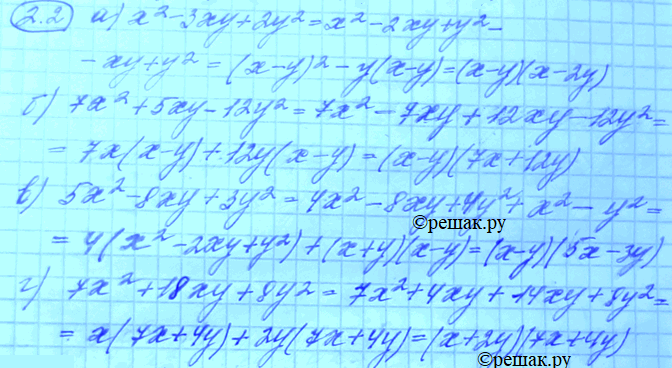 2.2 а) x² - 3xy + 2y² = x² - 2xy + y² -
- xy + y² = (x-y)² - y(x-y) = (x-y)(x-2y)
б) 7x² + 5xy - 12y² = 7x² - 7xy + 12xy - 12y² =
= 7x(x-y) + 12y(x-y) = (x-y)(7x+12y)
в) 5x² - 8xy + 3y² = 4x² - 8xy + 4y² + x² - y² =
©решак.ру
= 4(x² - 2xy + y²) + (x+y)(x-y) = (x-y)(5x-3y)
г) 7x² + 18xy + 8y² = 7x² + 4xy + 14xy + 8y² =
= x(7x+4y) + 2y(7x+4y) = (x+2y)(7x+4y)
©решак.ру